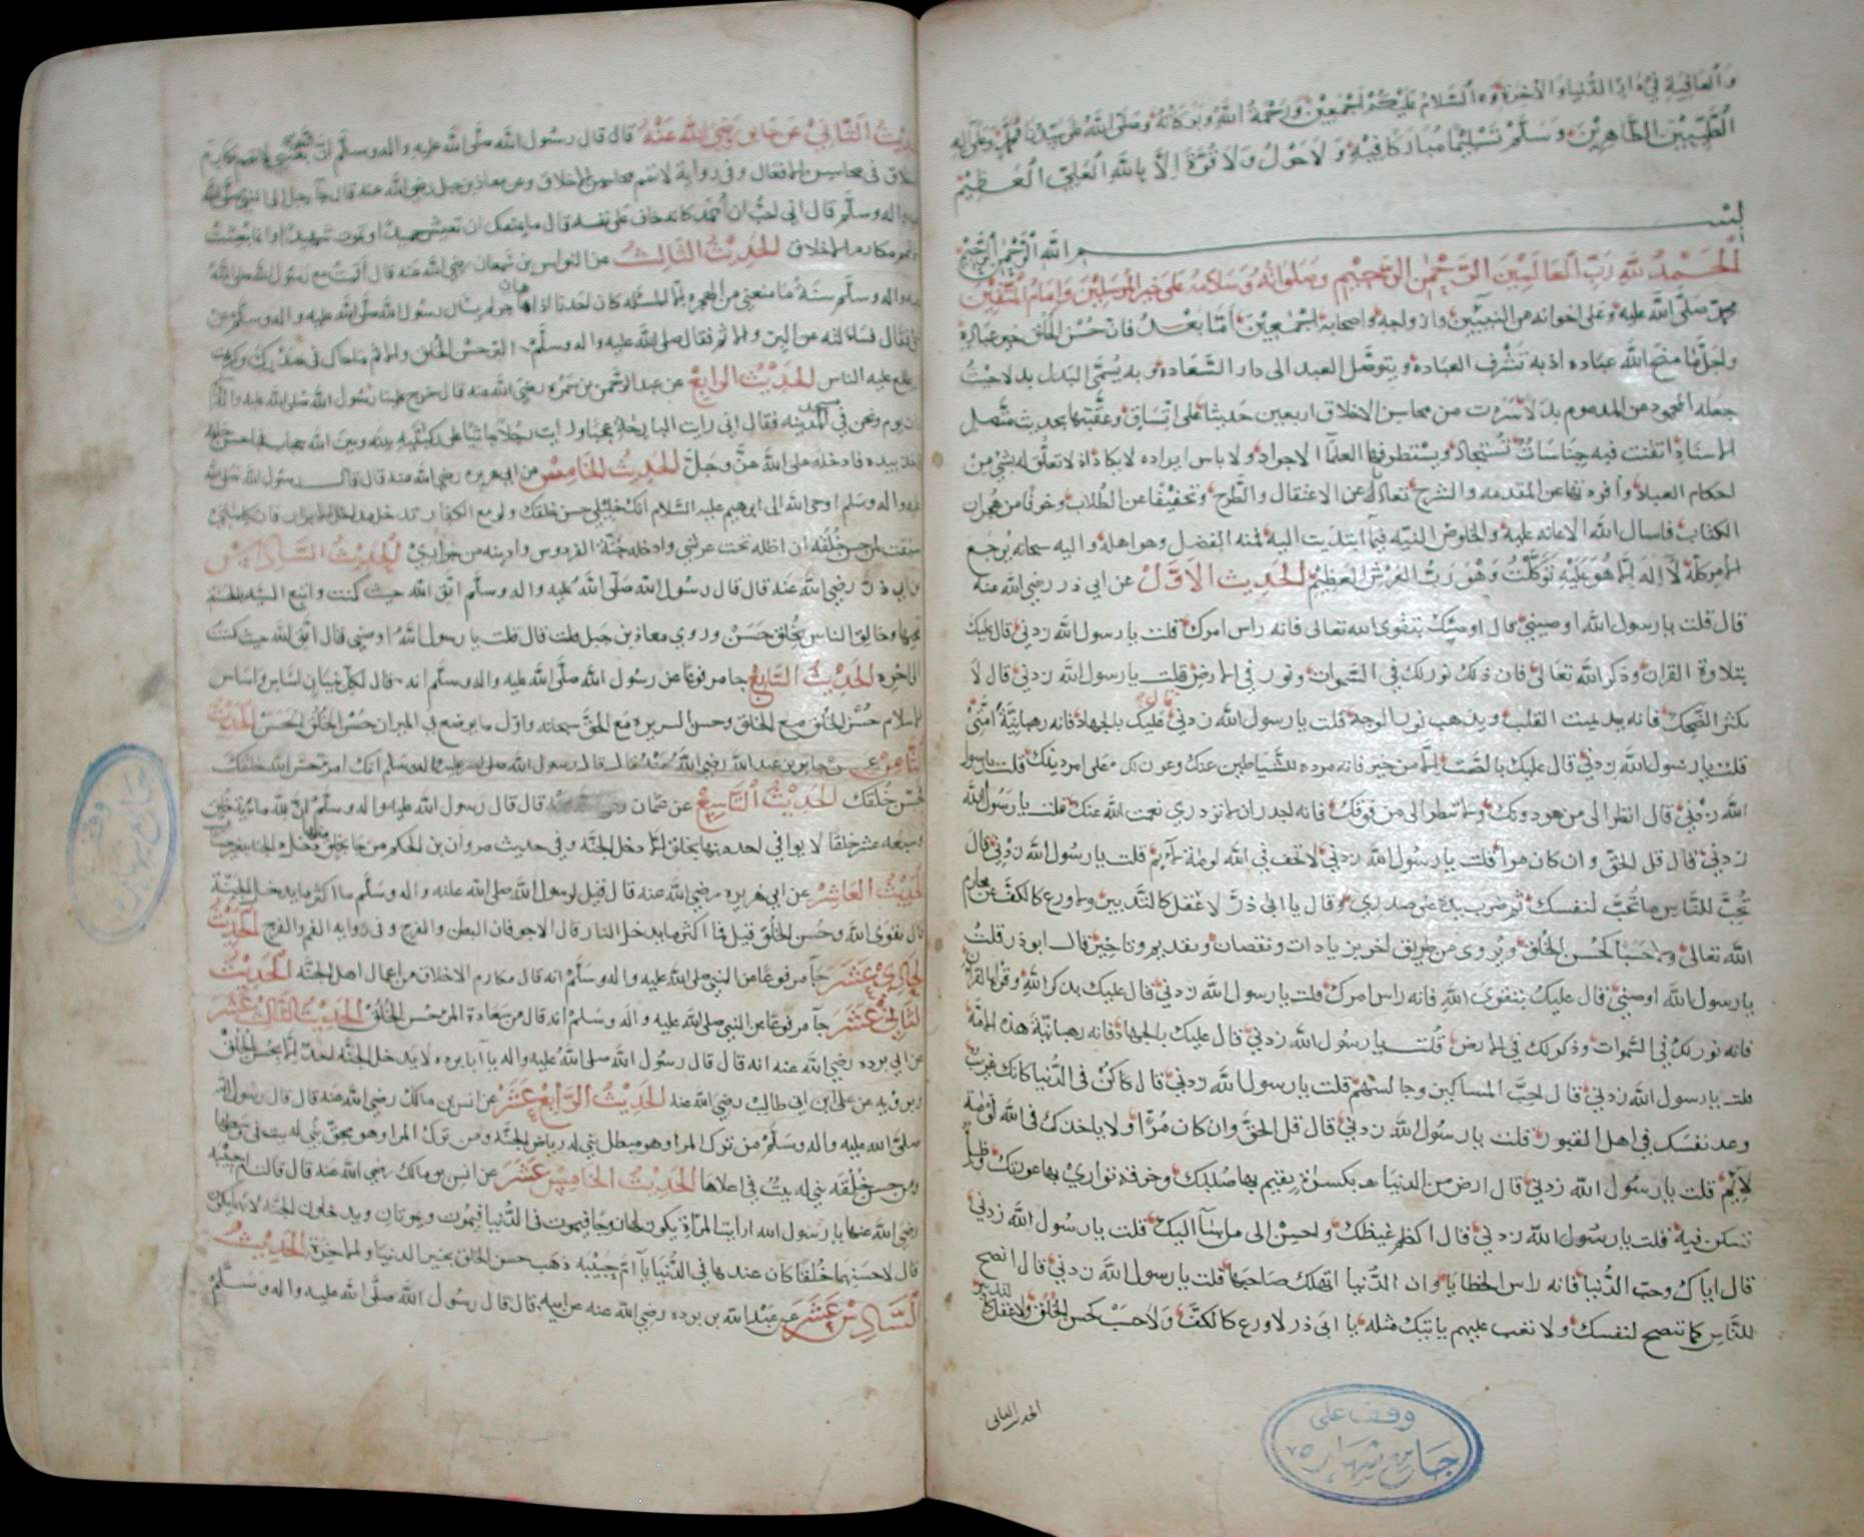 والعافية في دار الدنيا والآخرة والسلام عليكم اجمعين ورحمة الله وبركاته وصلى الله على سيدنا محمد وعلى اله
الطيبين الطاهرين وسلم تسليما مباركا فيه ولا حول ولا قوة الا بالله العلي العظيم
بسم الله الرحمن الرحيم
الحمد لله رب العالمين الرحمن الرحيم وصلواته وسلامه على خير المرسلين وامام المتقين
محمد صلى الله عليه وعلى اخوانه من النبيين وازواجه واصحابه اجمعين اما بعد فان حسن الخلق خير عباده
واجل ما منح الله عباده اذ به تشرف العباده ويتوصل العبد الى دار السعاده وبه يسمى البدل بدلا حيث
جعله المحمود من المذموم بدلا سردت من محاسن الاخلاق اربعين حديثا على اتساق وعقبتها بحديث متصل
الاسناد اتفقت فيه جناسات تستجاد ويستظرفها العلما الاجواد ولا باس ايراده لا يكاد اذ لا تعلق له بشي من
احكام العباد وافردتها عن المقدمه والشرح تعاد له عن الاعتقال والطرح وتخفيفا عن الطلاب وخوفا من هجران
الكتاب فاسال الله الاعانه عليه والخلوص النيه فيما ابتديت اليه فمنه الفضل وهو اهله واليه سبحانه يرجع
الامر كله لا اله الا هو عليه توكلت وهو رب العرش العظيم الحديث الاول عن ابي ذر رضي الله عنه
قال قلت يا رسول الله اوصيني قال اوصيك بتقوى الله تعالى فانه راس امرك قلت يا رسول الله زدني قال عليك
بتلاوة القران وذكر الله تعالى فان ذلك نور لك في السموات ونور في الارض قلت يا رسول الله زدني قال لا
تكثر الضحك فانه يميت القلب ويذهب نور الوجه قلت يا رسول الله زدني قال عليك بالجهاد فانه رهبانية امتي
قلت يا رسول الله زدني قال عليك بالصمت الا من خير فانه مرده للشياطين عنك وعون لك على امر دينك قلت يا رسول
الله زدني قال انظر الى من هو دونك ولا تنظر الى من فوقك فانه اجدر ان لا تزدري نعمت الله عندك قلت يا رسول الله
زدني قال قل الحق وان كان مرا قلت يا رسول الله زدني لا تخف في الله لومة لائم قلت يا رسول الله زدني قال
تحب للناس ما تحب لنفسك ثم ضرب بيده على صدري وقال يا ابى ذر لا عقل كالتدبير ولا ورع كالكف عن محارم
الله تعالى ولا حسبا كحسن الخلق ويروى من طريق اخرى زيادات ونقصان وتقديم وتاخير قال ابو ذر قلت
يا رسول الله اوصني قال عليك بتقوى الله فانه راس امرك قلت يا رسول الله زدني قال عليك بذكر الله وقراة القران
فانه نور لك في السموات وذكر لك في الارض قلت يا رسول الله زدني قال عليك بالجهاد فانه رهبانية هذه الامة
قلت يا رسول الله زدني قال احب المساكين وجالسهم قلت يا رسول الله زدني قال كن في الدنيا كانك غريب
وعد نفسك في اهل القبور قلت يا رسول الله زدني قال قل الحق وان كان مرا ولا ياخذك في الله لومة
لائم قلت يا رسول الله زدني قال ارض من الدنيا بكسرة يقيم بها صلبك وخرقه تواري بها عورتك وظل
تسكن فيه قلت يا رسول الله زدني قال اكظم غيظك واحسن الى من اسآ اليك قلت يا رسول الله زدني
قال اياك وحب الدنيا فانه راس الخطايا وان الدنيا تهلك صاحبها قلت يا رسول الله زدني قال انصح
للناس كما تنصح لنفسك ولا تعب عليهم ما فيك مثله يا ابى ذر لا ورع كالكف ولا حسب كحسن الخلق ولا عقل كالتدبير
الحديث الثاني
وقف على
جامع شهاره
الحديث الثاني عن جابر رضي الله عنه قال قال رسول الله صلى الله عليه واله وسلم ان الله بعثني لاتمم مكارم
الاخلاق في محاسن الافعال وفي رواية لاتمم محاسن الاخلاق وعن معاذ بن جبل رضي الله عنه قال جآ رجل الى النبي صلى الله
عليه واله وسلم قال اني احب ان احمد كانه خاف على نفسه قال ما يمنعك ان تعيش حميدا وتموت شهيدا وانما بعثت
لاتمم مكارم الاخلاق الحديث الثالث عن النواس بن سمعان رضي الله عنه قال اقمت مع رسول الله صلى الله
عليه واله وسلم سنة ما منعني من الهجره الا المسئله كان احدنا اذا هاجر لم يسال رسول الله صلى الله عليه واله وسلم عن
شي فقال فسالته عن البر والاثم فقال صلى الله عليه واله وسلم البر حسن الخلق والاثم ما حاك في صدرك وكرهت
ان يطلع عليه الناس الحديث الرابع عن عبد الرحمن بن سمره رضي الله عنه قال خرج علينا رسول الله صلى الله عليه واله
ذات يوم ونحن في مسجد المدينه فقال اني رايت البارحة عجبا رايت رجلا جاثيا على ركبتيه بينه وبين الله حجاب فجا حسن خلقه
فاخذ بيده فادخله على الله عز وجل الحديث الخامس عن ابي هريره رضي الله عنه قال قال رسول الله صلى الله
عليه واله وسلم اوحى الله الى ابرهيم عليه السلام انك خليلي حسن خلقك ولو مع الكفار تدخل مداخل الابرار فان كلمتي
سبقت لمن حسن خلقه ان اظله تحت عرشي وادخله جنة الفردوس وادنيه من جواري الحديث السادس
عن ابي ذر رضي الله عنه قال قال رسول الله صلى الله عليه واله وسلم اتق الله حيث كنت واتبع السيئه الحسنة
تمحها وخالق الناس بخلق حسن وروي معاذ بن جبل قال قلت يا رسول الله اوصني قال اتق الله حيث كنت
الى اخره الحديث السابع جا مرفوعا عن رسول الله صلى الله عليه واله وسلم انه قال لكل بنيان اساس واساس
الاسلام حسن الخلق مع الخلق وحسن السريره مع الحق سبحانه واول ما يوضع في الميزان حسن الخلق الحسن الحديث
الثامن عن جابر بن عبد الله رضي الله عنه قال قال رسول الله صلى الله عليه واله وسلم انك امر حسن الله خلقك
فحسن خلقك الحديث التاسع عن عثمان قال قال رسول الله عليه واله وسلم ان لله مائة خلق
وسبعه عشر خلقا لا يوافي احد منها بخلق الا دخل الجنة وفي حديث مروان بن الحكم من جا بخلق
الحديث العاشر عن ابي هريره رضي الله عنه قال قيل لرسول الله صلى الله عليه واله وسلم ما اكثر ما يدخل الجنة
قال تقوى الله وحسن الخلق قيل فما اكثر ما يدخل النار قال الاجوفان البطن والفرج وفي روايه الفم والفرج الحديث
الحادي عشر جآ مرفوعا عن النبي صلى الله عليه واله وسلم انه قال مكارم الاخلاق من اعمال اهل الجنة الحديث
الثاني عشر جآ مرفوعا عن النبي صلى الله عليه واله وسلم انه قال من سعادة المر حسن الخلق الحديث الثالث عشر
عن ابي برده رضي الله عنه انه قال قال رسول الله صلى الله عليه واله يا آبا برده لا يدخل الجنة احد الا بحسن الخلق
وبرويه عن علي ابن ابي طالب رضي الله عنه الحديث الرابع عشر عن انس بن مالك رضي الله عنه قال قال رسول الله
صلى الله عليه واله وسلم من ترك المرا وهو مبطل بني له رياض الجنة ومن ترك المرا وهو محق بني له بيت في وسطها
ومن حسن خلقه بني له بيت في اعلاها الحديث الخامس عشر عن انس بن مالك رضي الله عنه قال قالت ام حبيبه
رضي الله عنها يا رسول الله ارايت المراة يكون لها زوجا فيموت في الدنيا فيموت ويموتان ويدخلون الجنة لايهما يكون
قال لاحسنهما خلقا كان عندها في الدنيا يا ام حبيبه ذهب حسن الخلق بخير الدنيا والاخرة الحديث
السادس عشر عن عبد الله بن برده رضي الله عنه عن ابيه قال قال رسول الله صلى الله عليه واله وسلم
وقف
جامع شهاره